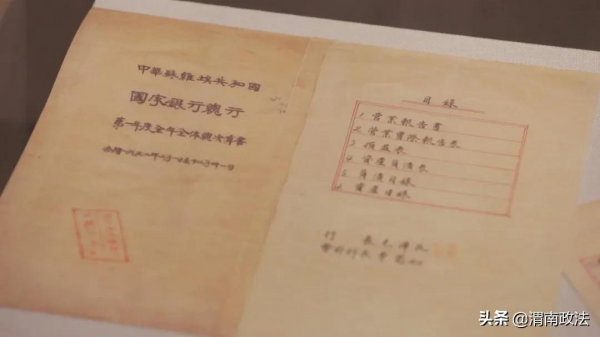 中華蘇維埃共和國
國家銀行總行
第一年度全年全体決算書
目錄
1. 營業報告書
2. 營業實際報告表
3. 損益表
4. 資產負債表
5. 負債目錄
6. 資產目錄
行 長毛澤民
會計科長曹菊如
头条 @渭南政法